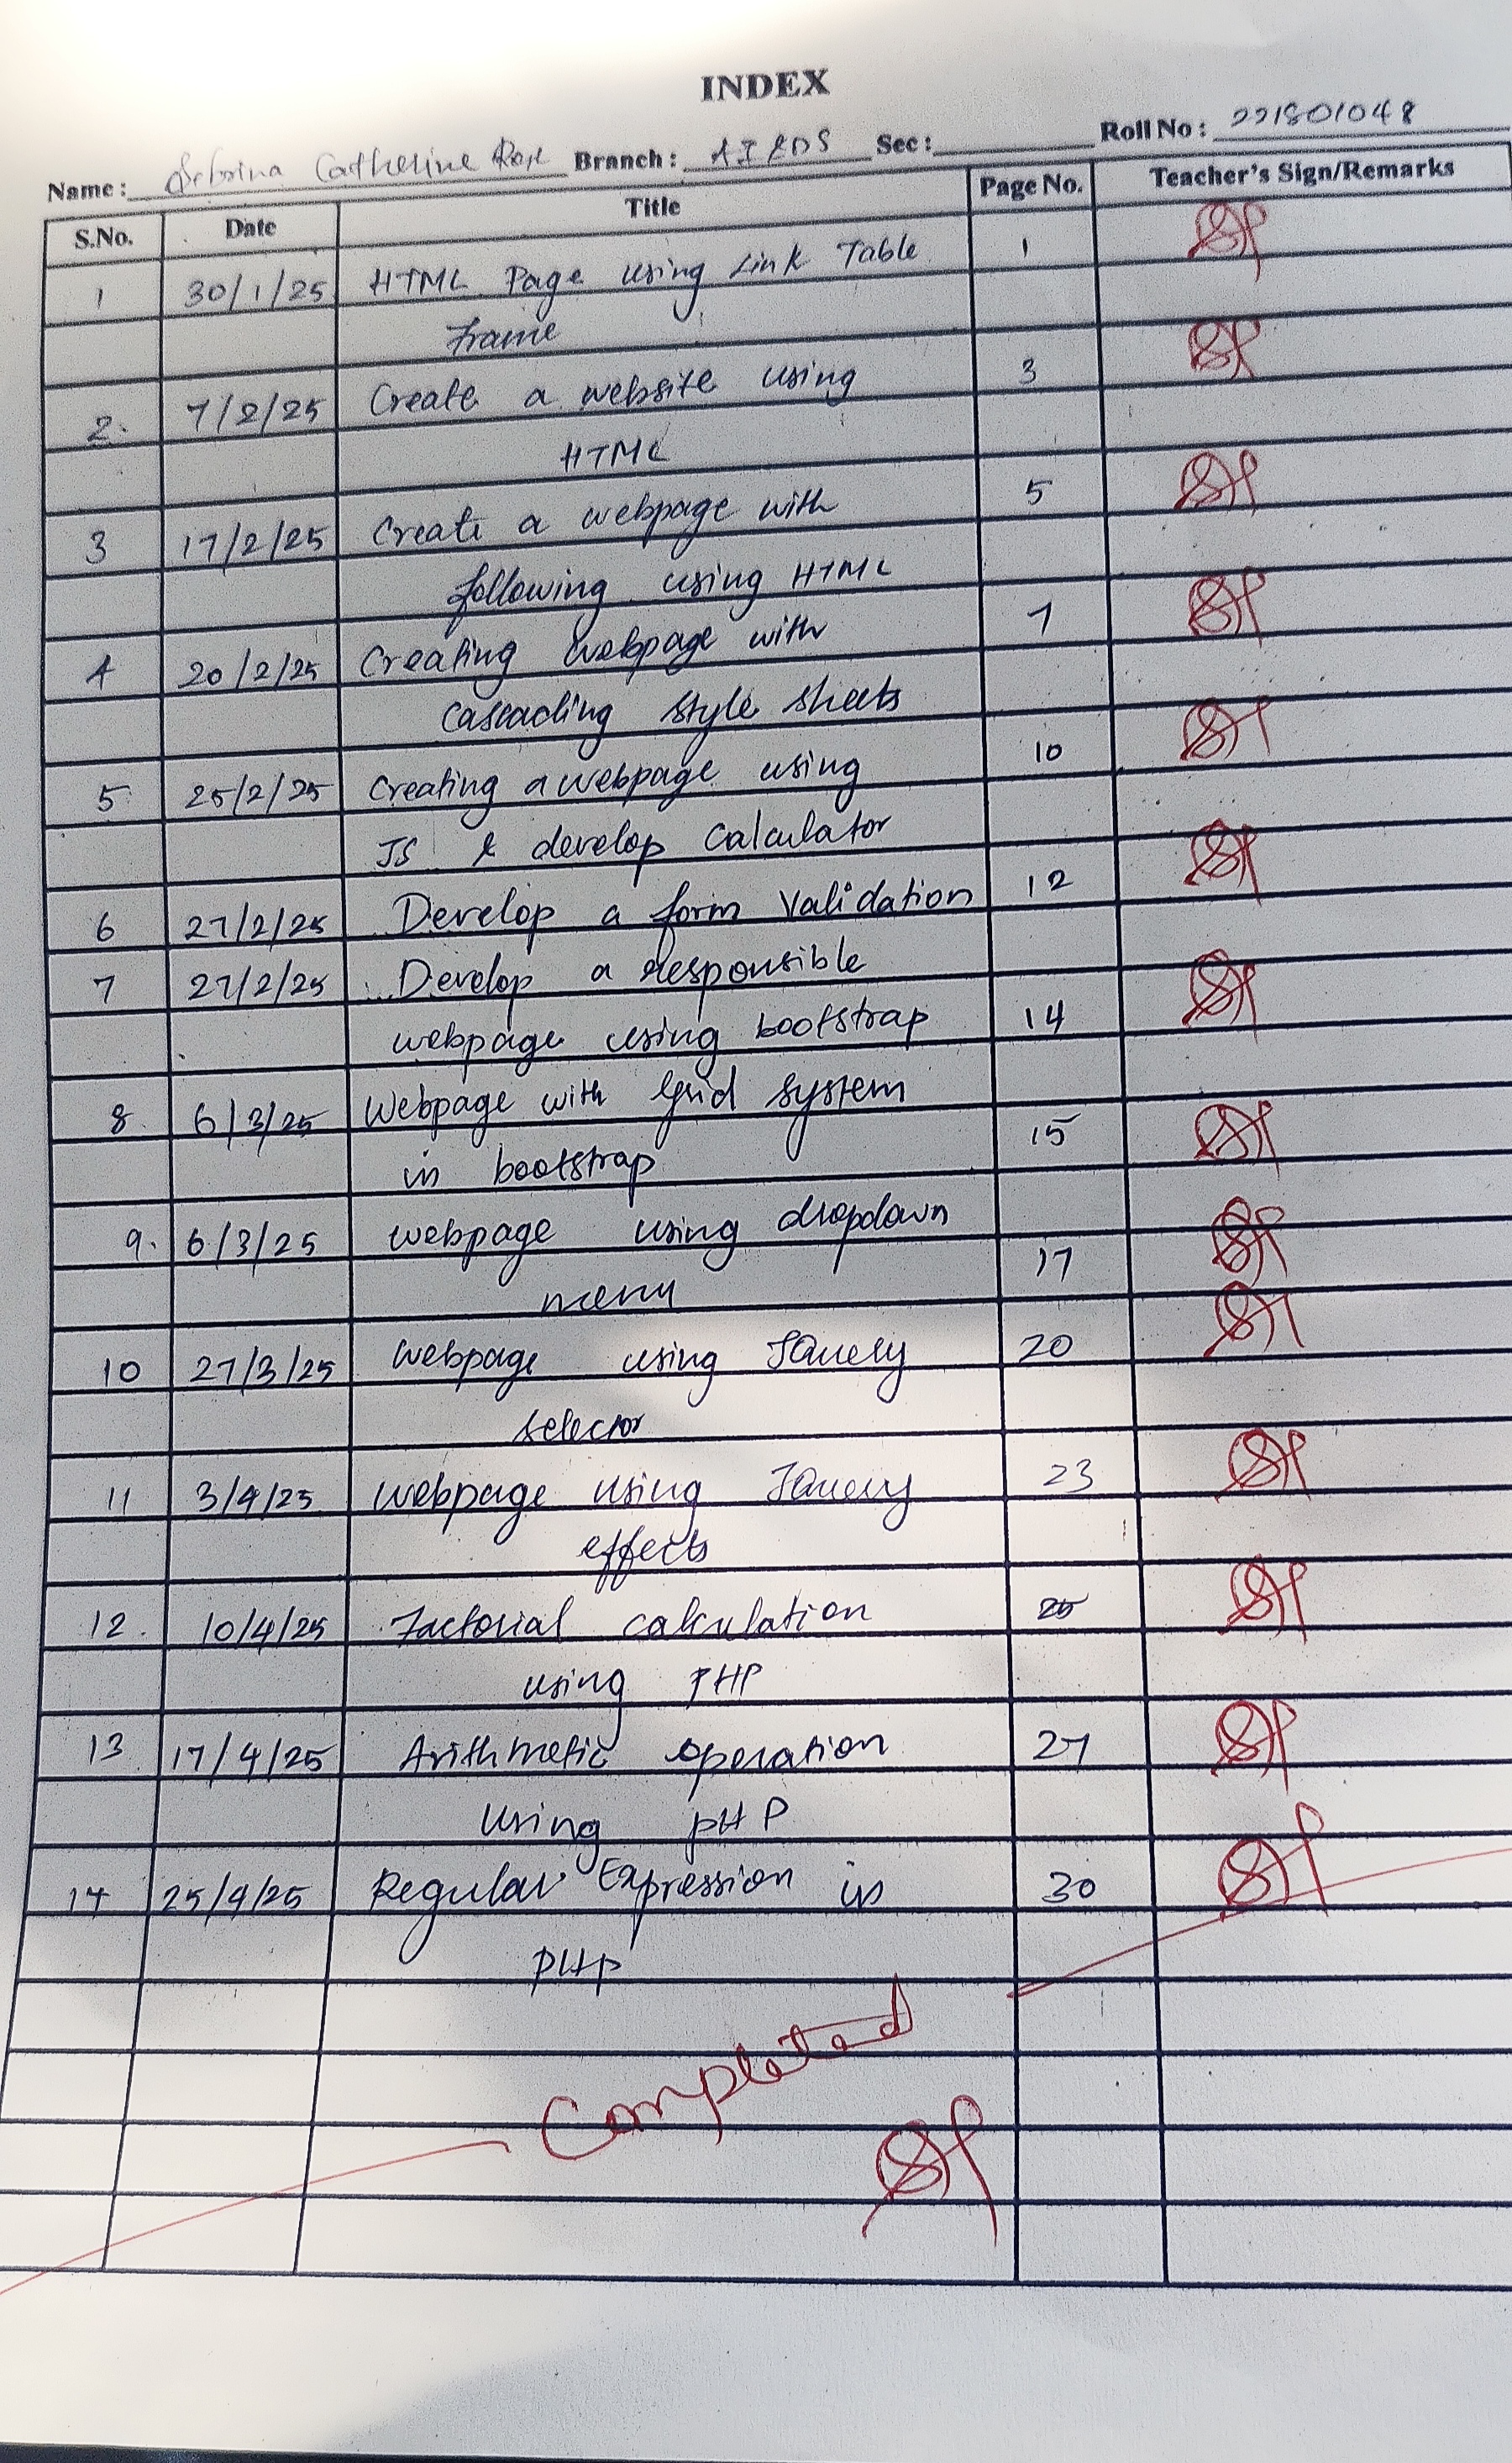 INDEX
Name: Sebrina Catherine Rose Branch: AI & DS Sec: Roll No: 221801048
S.No. Date Title Page No. Teacher's Sign/Remarks
1 30/1/25 HTML Page using Link Table 1
Frame
2. 7/2/25 Create a website using 3
HTML
3 17/2/25 Create a webpage with 5
following using HTML
4 20/2/25 Creating webpage with 7
Cascading Style Sheets
5 25/2/25 Creating a webpage using 10
JS & develop calculator
6 27/2/25 Develop a form Validation 12
7 27/2/25 Develop a Responsible
webpage using bootstrap 14
8 6/3/25 Webpage with Grid System
in bootstrap 15
9. 6/3/25 webpage using dropdown
menu 17
10 27/3/25 webpage using JQuery 20
selector
11 3/4/25 webpage using JQuery 23
effects
12. 10/4/25 Factorial calculation 25
using PHP
13 17/4/25 Arithmetic operation 27
using PHP
14 25/4/25 Regular Expression in 30
PHP
Completed